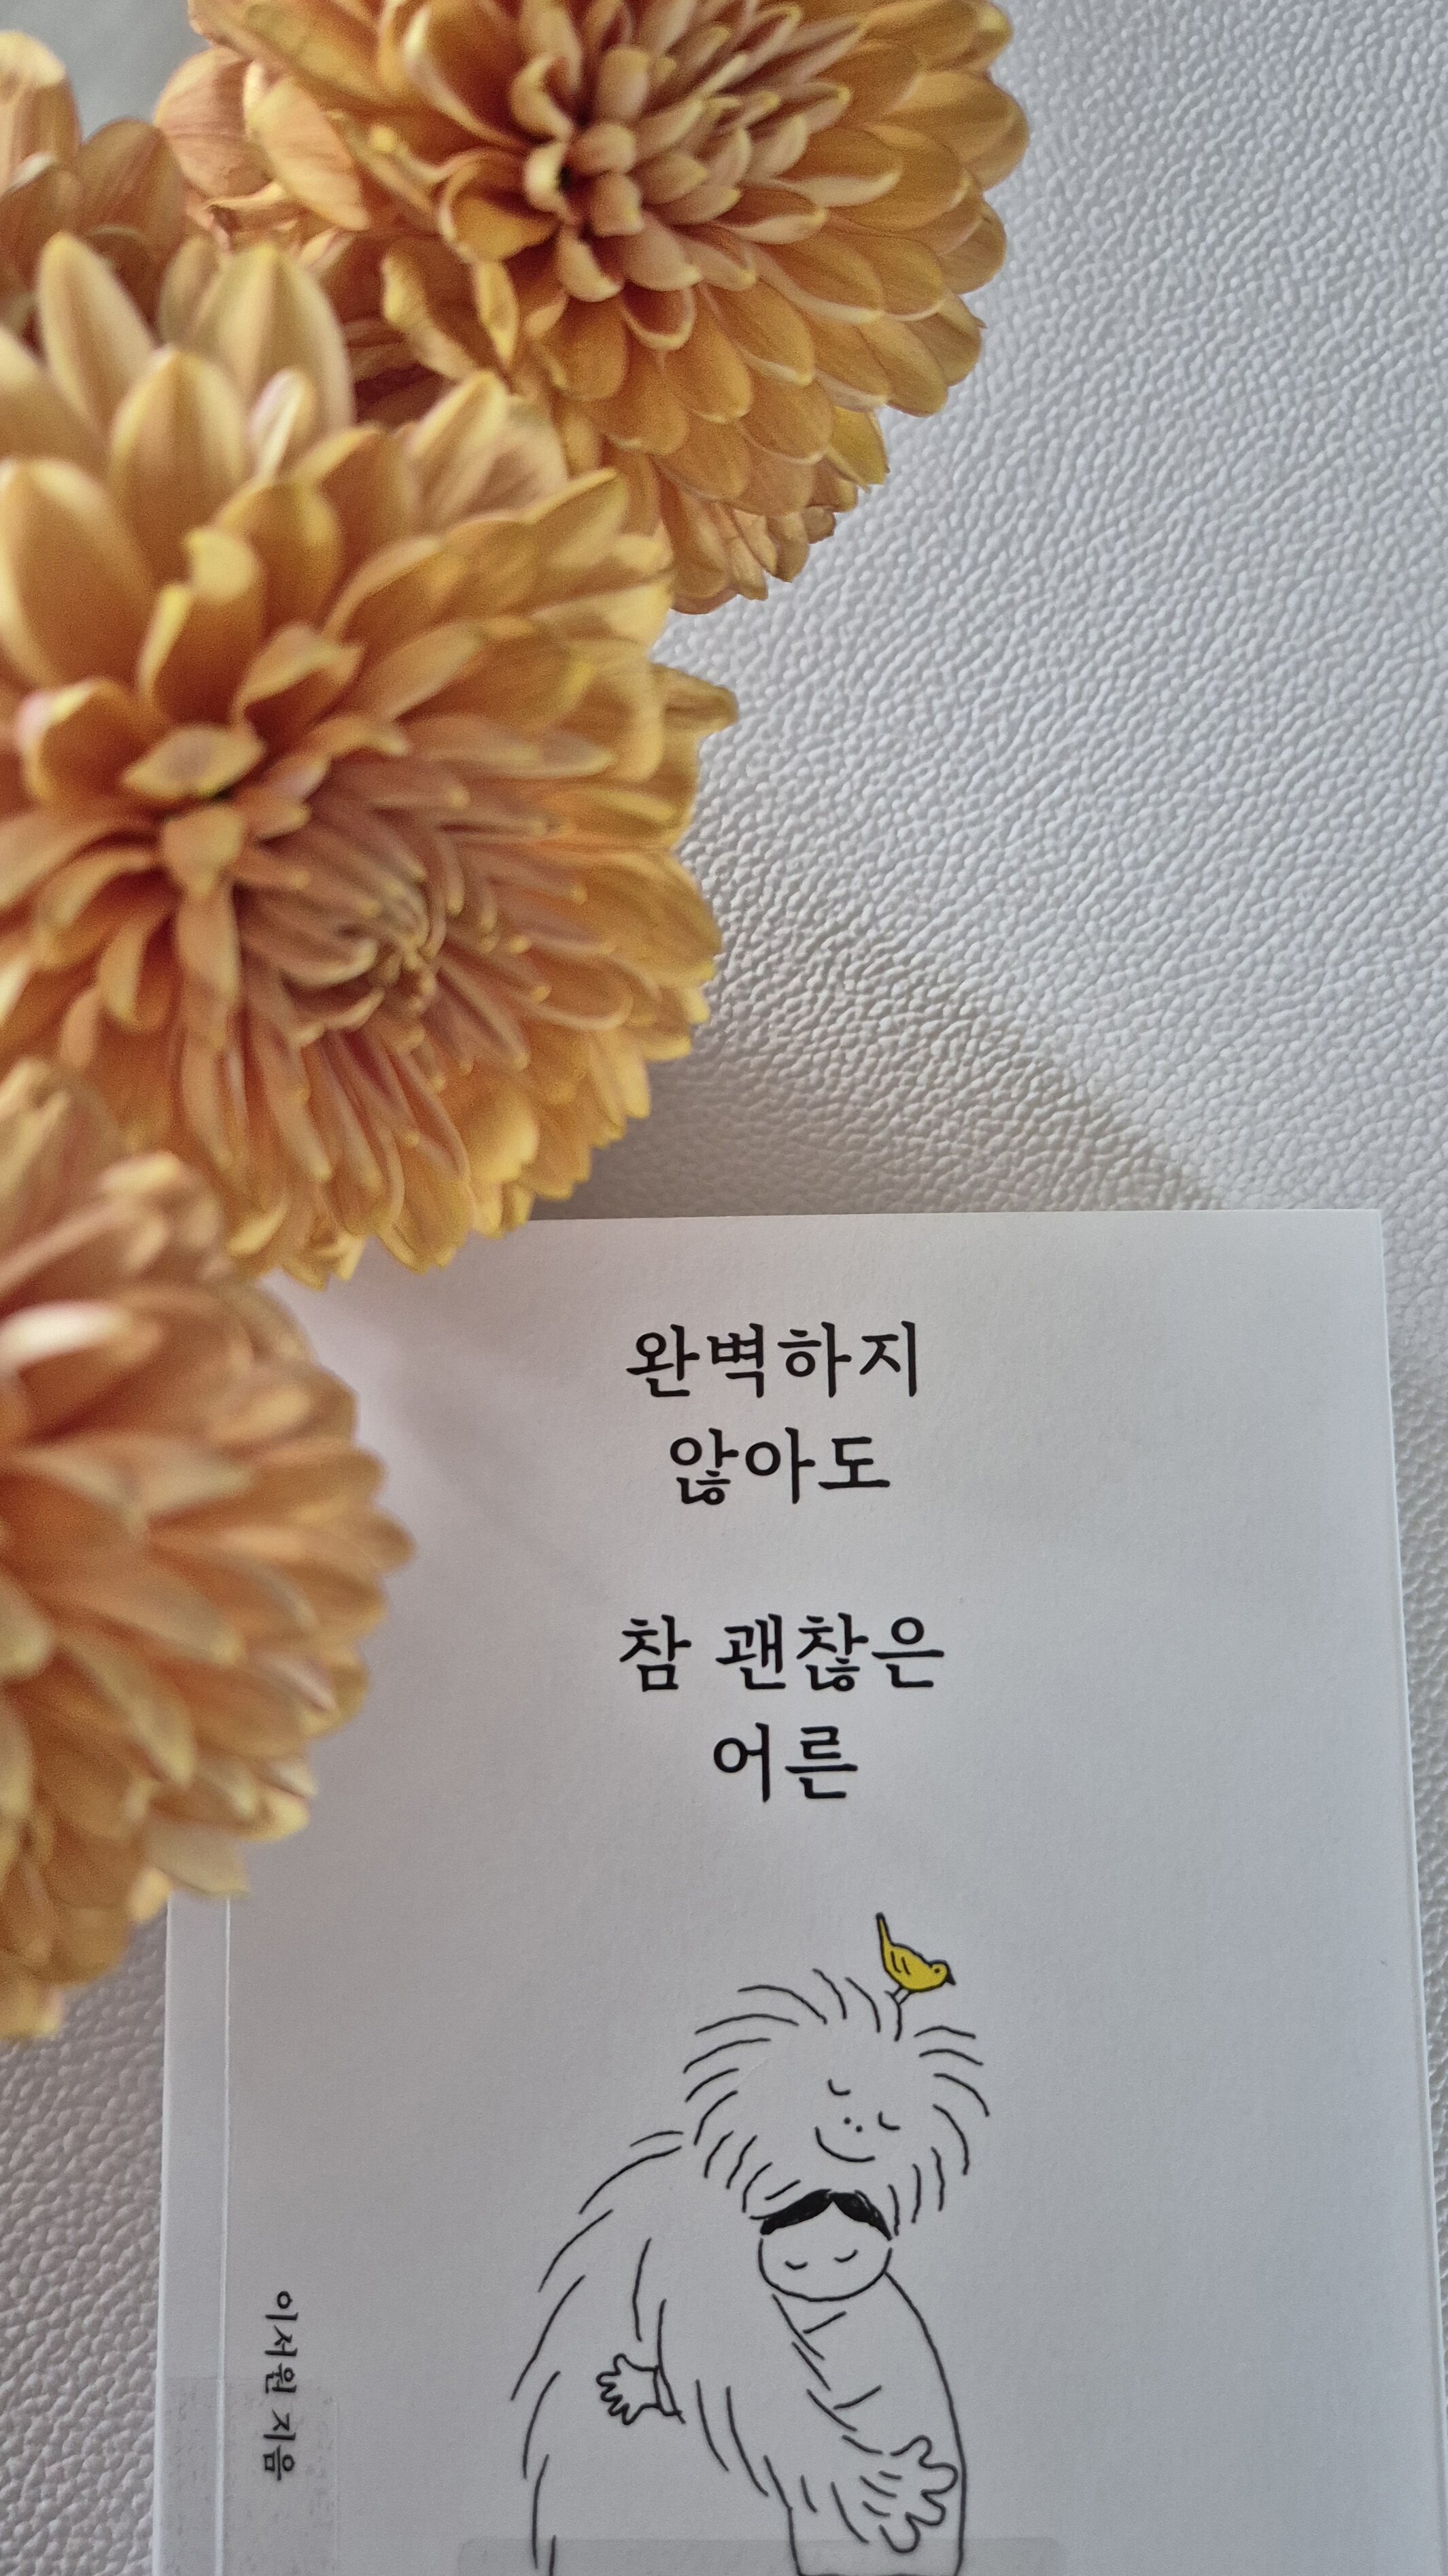 완벽하지
않아도
참 괜찮은
어른
이서원 지음